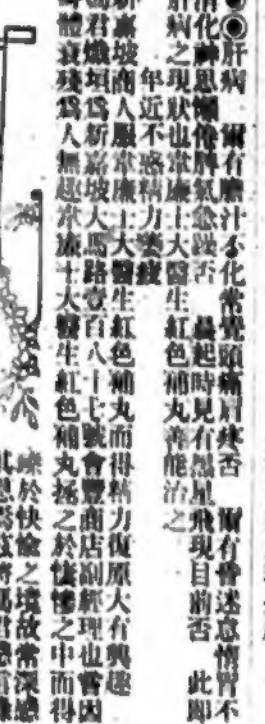 ◉肝病　爾有膽汁不化常覺頭痛肩疼否　爾有昏迷怠惰胃不
消化神思懶倦脾氣急躁否　晨起時見有烈星飛現目前否　此即
肝病之現狀也韋廉士大醫生紅色補丸善能治之
年近不惑精力衰疲
新嘉坡商人服韋廉士大醫生紅色補丸而得精力復原大有興趣
君熾垣為新嘉坡大馬路壹百八十七號會豐商店副經理也嘗因
體衰殘為人無趣韋廉士大醫生紅色補丸拯之於悽慘之中而得
樂於快愉之境故常深感